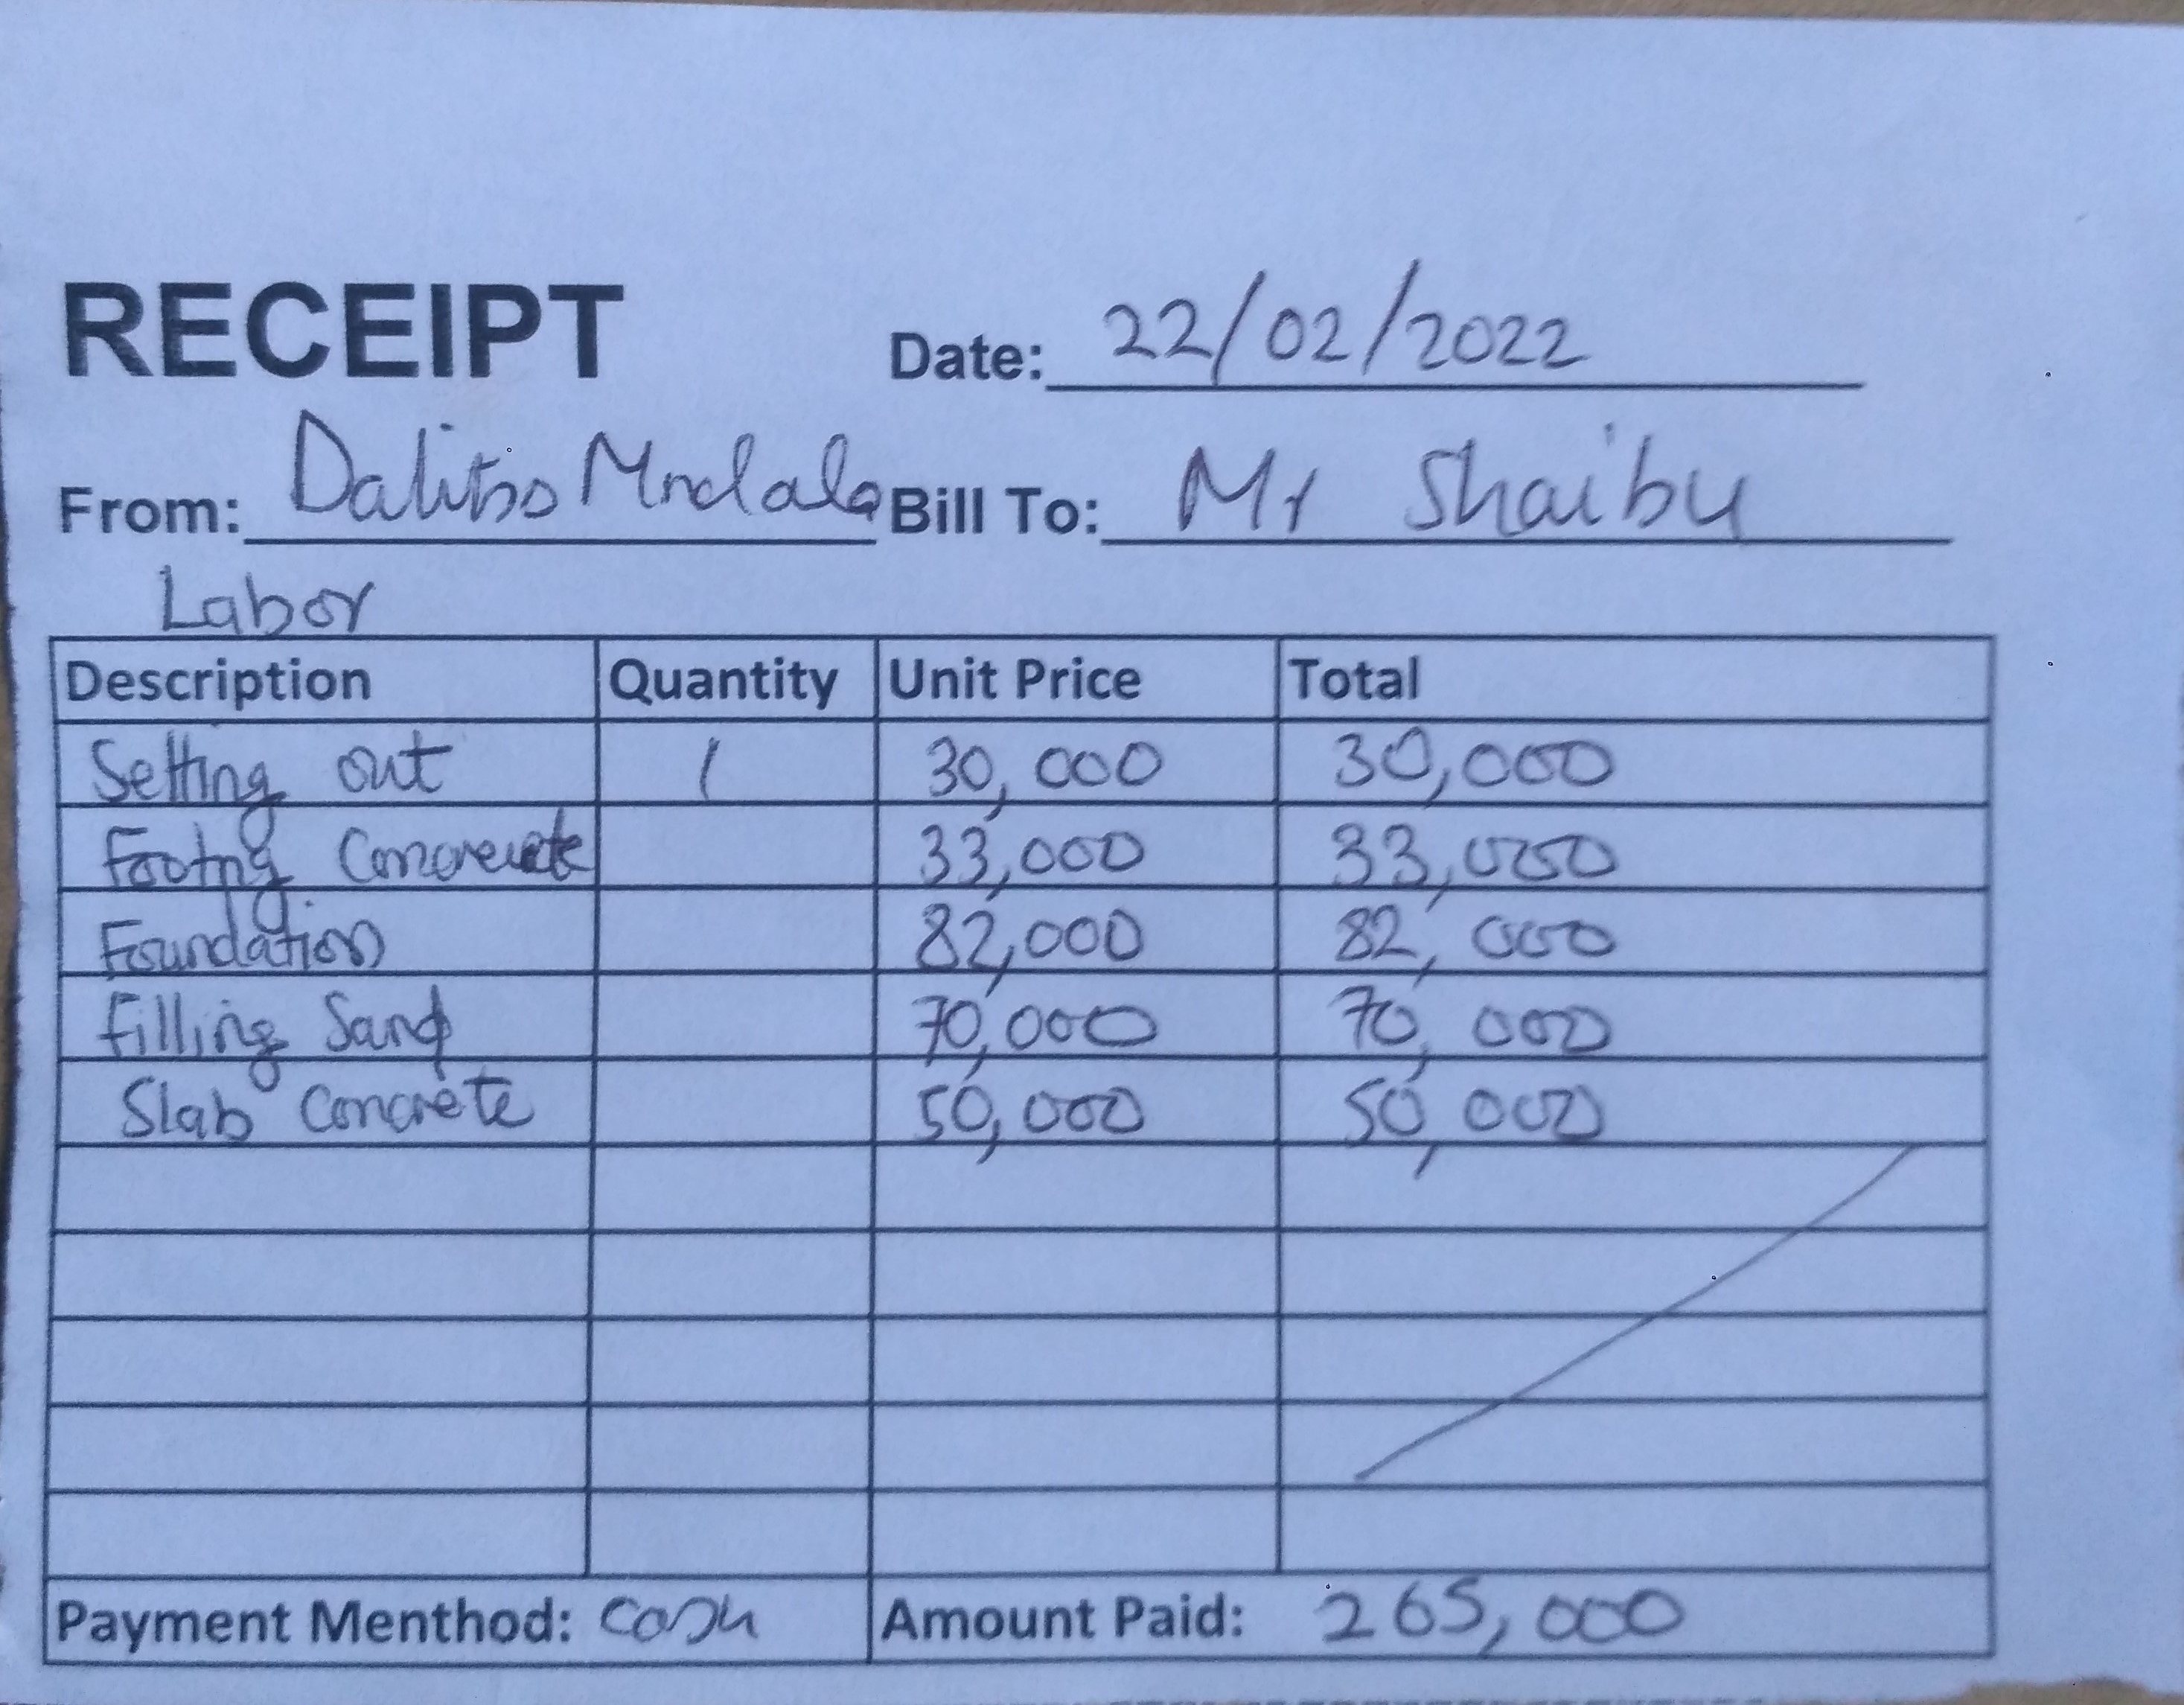 RECEIPT Date: 22/02/2022
From: Dalitso Mndala Bill To: Mr Shaibu
Labor
Description Quantity Unit Price Total
Setting out 1 30,000 30,000
Footing Concrete 33,000 33,000
Foundation 82,000 82,000
Filling Sand 70,000 70,000
Slab Concrete 50,000 50,000
Payment Menthod: cash Amount Paid: 265,000